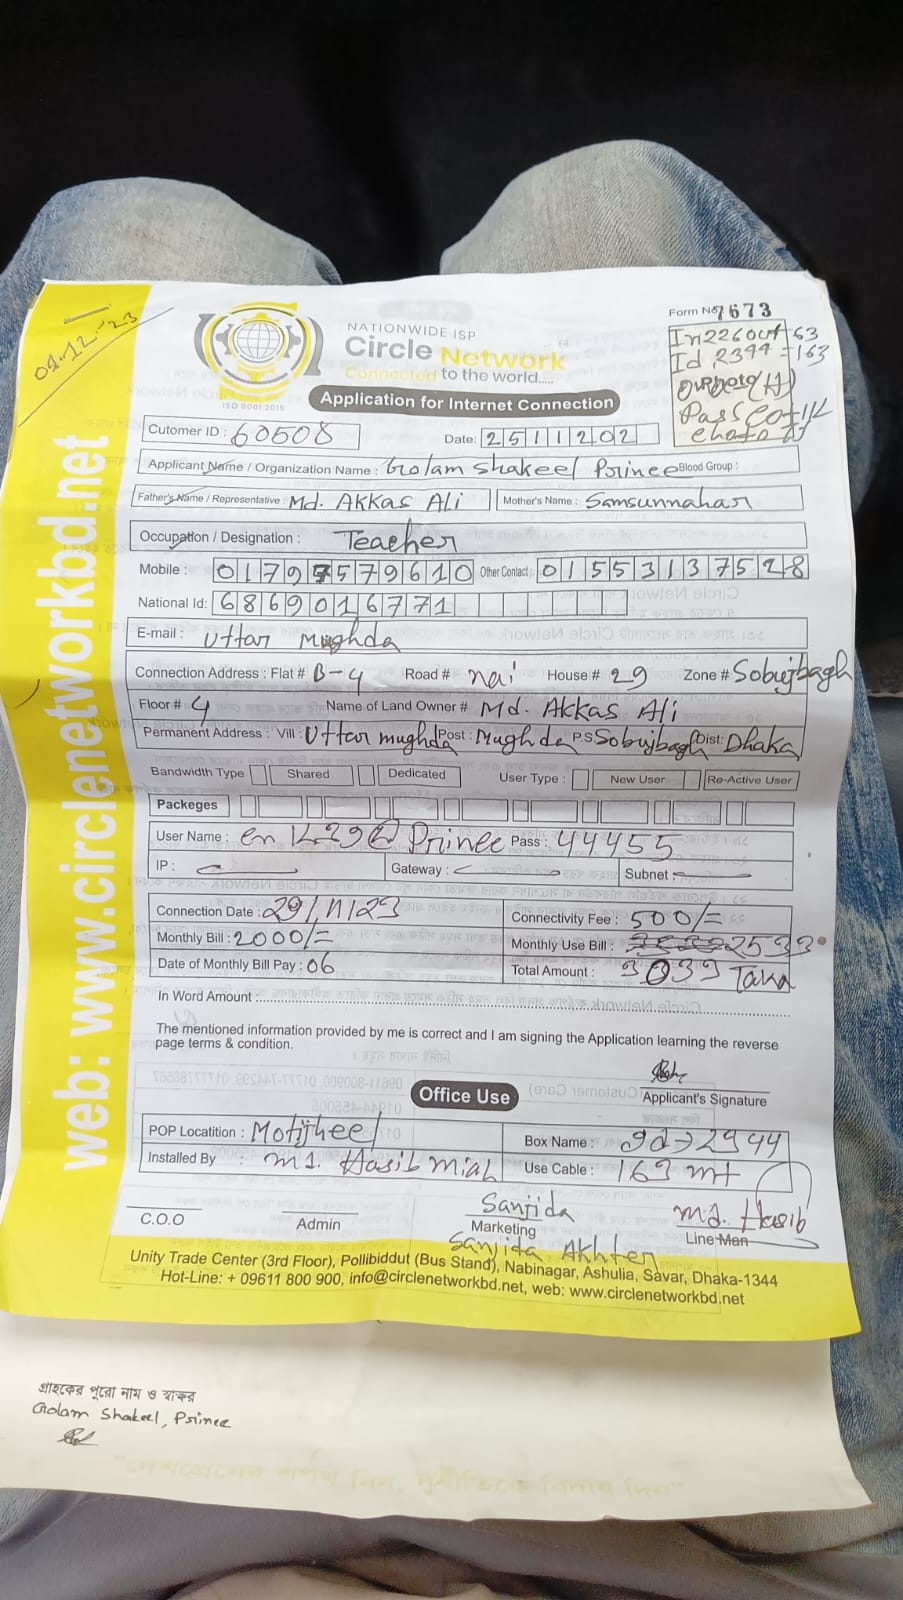 01-12-23
NATIONWIDE ISP
Circle Network
Connected to the world.....
ISO 9001:2015
Form No 7673
In 226 out 63
Id 2344 = 163
Application for Internet Connection
Cutomer ID : 60508
Date: 2511202
Applicant Name / Organization Name : Golam Shakeel Prince Blood Group :
Father's Name / Representative : Md. AKKAS Ali Mother's Name : Samsunnahar
Occupation / Designation : Teacher
Mobile : 01797579610 Other Contact : 01553137528
National Id: 6869016771
E-mail : Uttar Mughda
Connection Address : Flat # B-4 Road # nai House # 29 Zone # Sobujbagh
Floor # 4 Name of Land Owner # Md. Akkas Ali
Permanent Address : Vill : Uttar mughda Post : Mughda P.S Sobujbagh Dist: Dhaka
Bandwidth Type Shared Dedicated User Type : New User Re-Active User
Packeges
User Name : Prince Pass : 44455
IP : Gateway : Subnet :
Connection Date : 29/11/23 Connectivity Fee : 500/=
Monthly Bill : 2000/= Monthly Use Bill : 2533
Date of Monthly Bill Pay : 06 Total Amount : 3033 Taka
In Word Amount :
The mentioned information provided by me is correct and I am signing the Application learning the reverse
page terms & condition.
Applicant's Signature
Office Use
POP Locatition : Motijheel Box Name :
Installed By : Md. Hasib Miah Use Cable : 163 mt
Sanjida Md. Hasib
C.O.O Admin Marketing Line Man
Sanjida Akhter
Unity Trade Center (3rd Floor), Pollibiddut (Bus Stand), Nabinagar, Ashulia, Savar, Dhaka-1344
Hot-Line: + 09611 800 900, info@circlenetworkbd.net, web: www.circlenetworkbd.net
web: www.circlenetworkbd.net
গ্রাহকের পুরো নাম ও স্বাক্ষর
Golam Shakeel, Prince